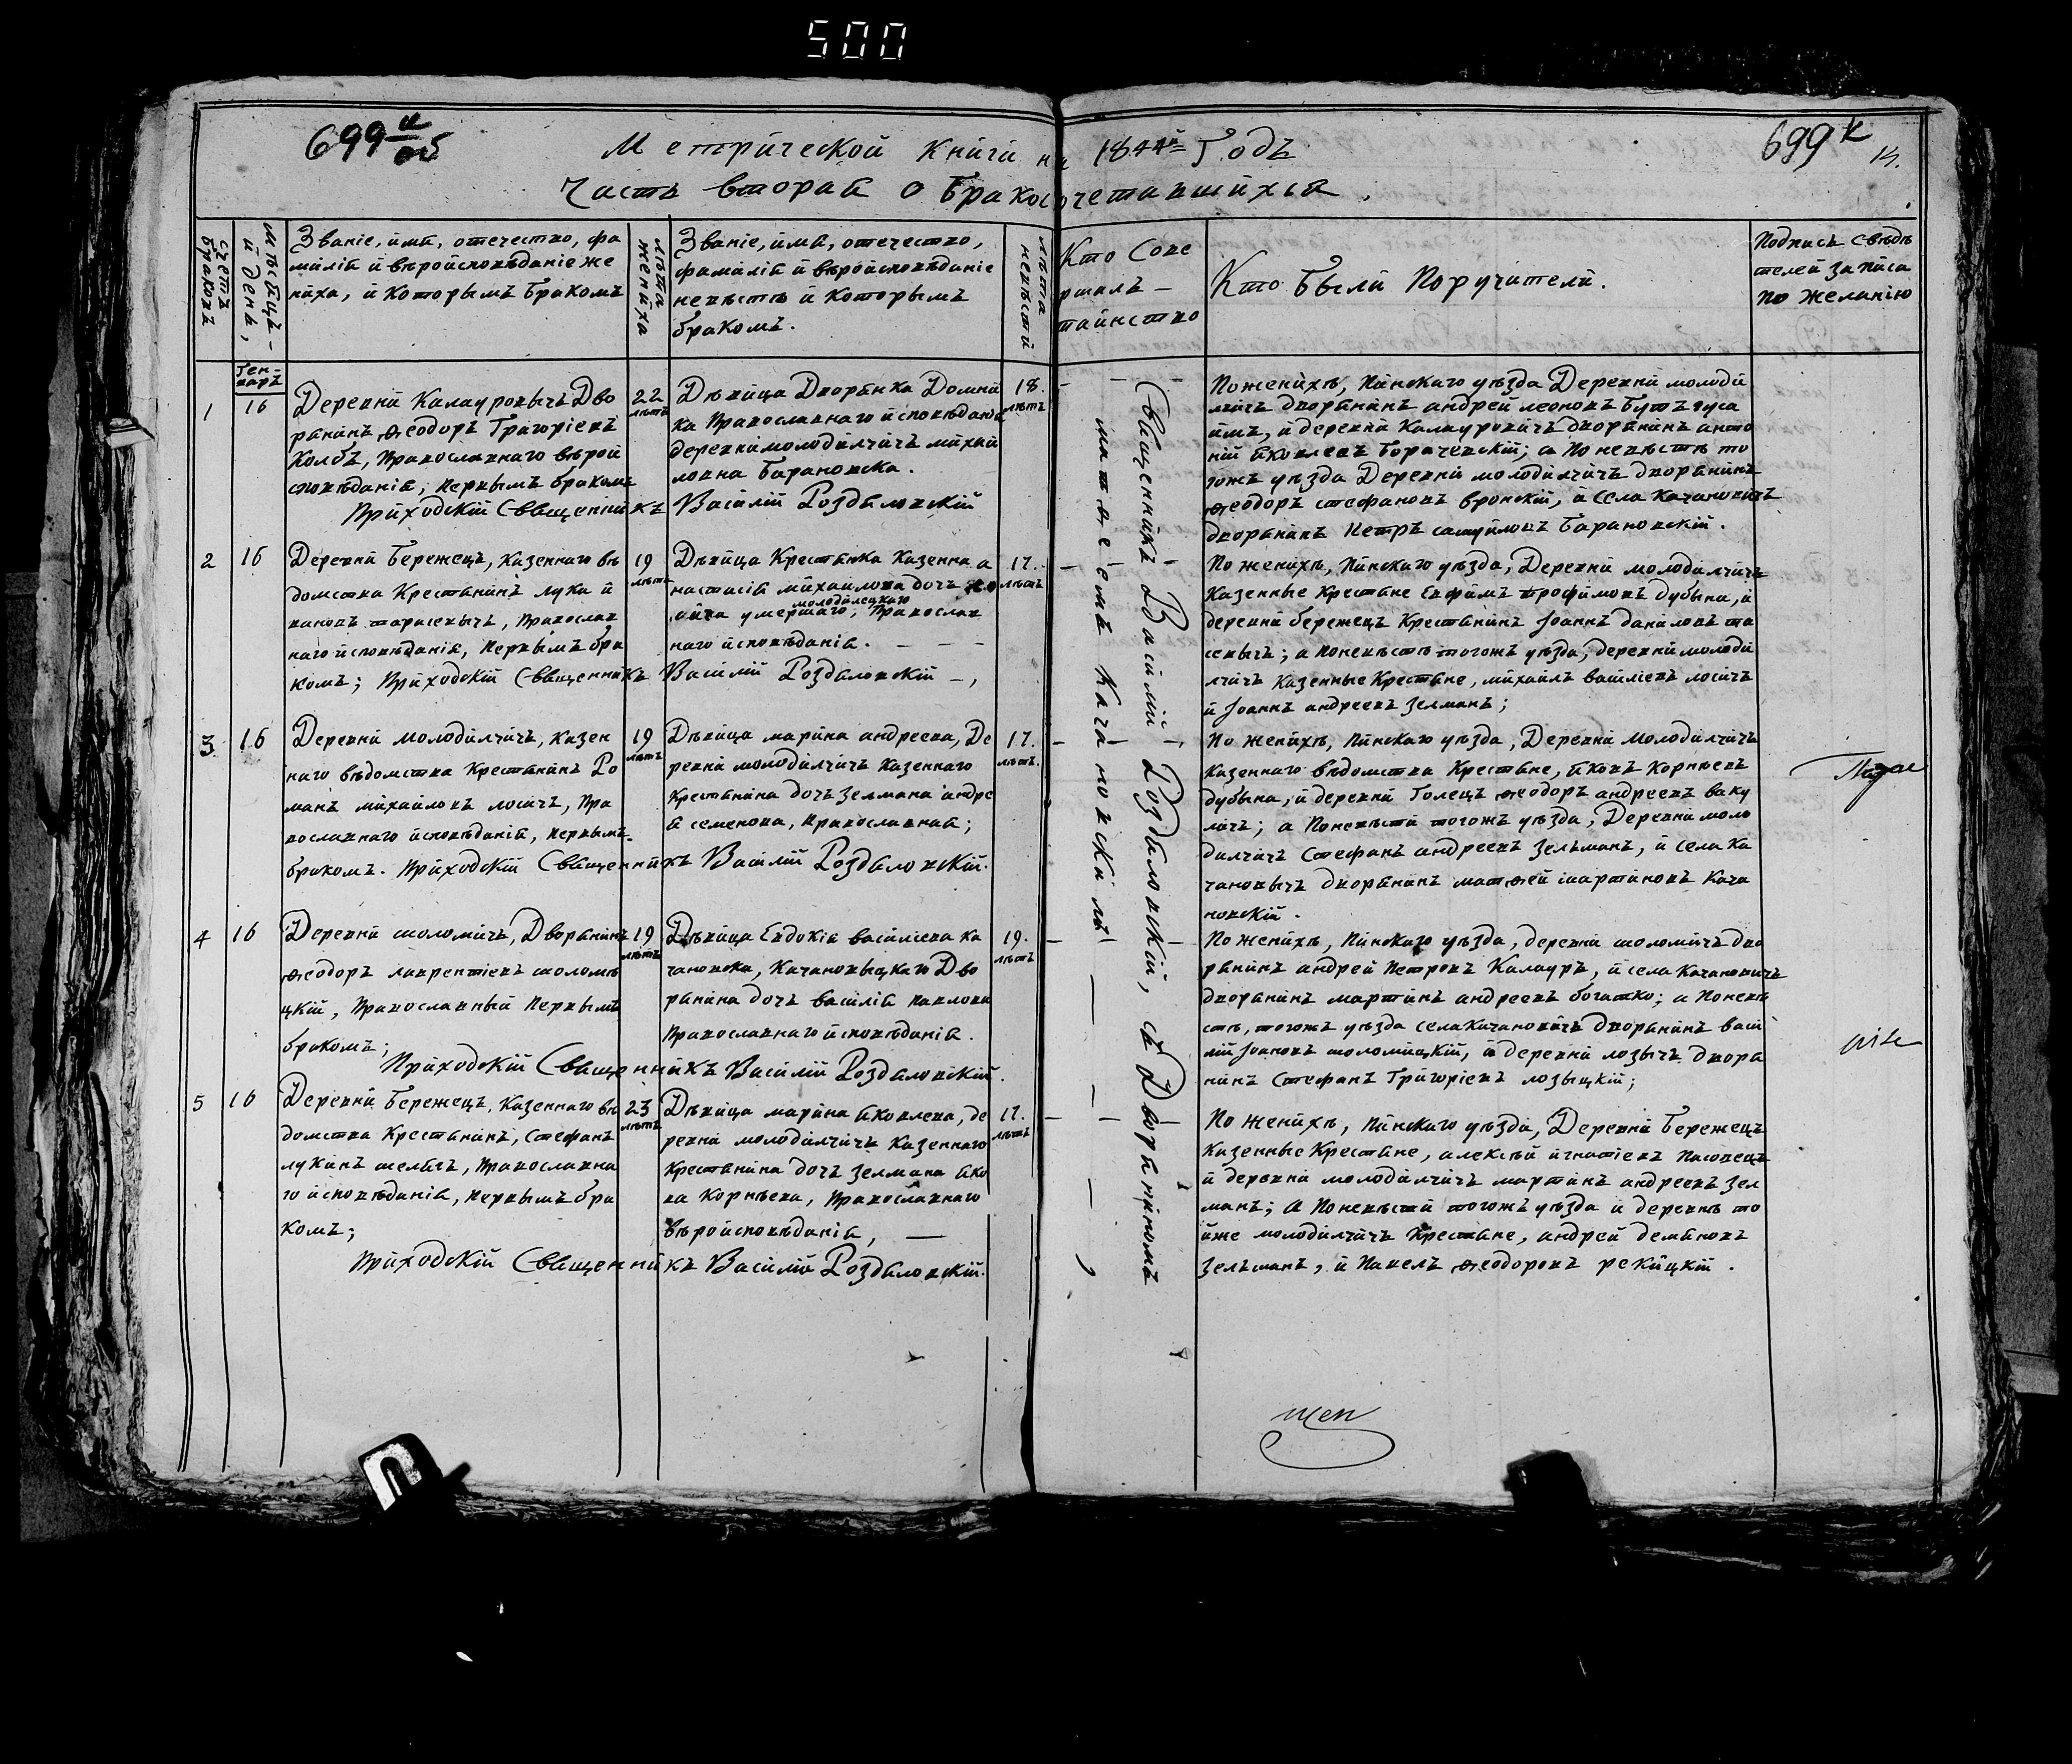 500
699 и об
Метрической Книги на 1844й Годъ
699 к
14.
Часть вторая о Бракосочетавшихся.
Счетъ Браковъ
Мѣсяцъ и день,
Званіе, имя, отечество, фа
милія и вѣроисповѣданіе же
ниха, и Которымъ Бракомъ
Лѣта жениха
Званіе, имя, отечество,
фамилія и вѣроисповѣданіе
невѣсты и Которымъ
бракомъ.
Лѣта невѣсты
Кто Сове
ршалъ
таинство
Кто Были Поручители.
Подпись свѣдѣ
телей записа
по желанію
Ген-
варъ
1
16
Деревни Калауровычъ Дво
рянинъ Ѳеодоръ Григоріевъ
Колбъ, Православнаго вѣрои
сповѣданія, первымъ бракомъ
22
лѣтъ
Дѣвица Дворянка Домни
ка Православнаго исповѣданія
деревни молодилчичъ михай
ловна Барановска.
18.
лѣтъ
Приходскій Священникъ Василій Роздяловскій
Священникъ Василій Роздяловскій, съ Дворяниномъ
матѳеемъ Качановскимъ
По женихѣ, Пинскаго уѣзда Деревни молоди
лчичъ дворянинъ андрей леоновъ Бутъгуса
имъ, и деревни Калауровичъ дворянинъ анто
ній яковлевъ Борачевскій; а По невѣстѣ то
гожъ уѣзда Деревни молодилчичъ дворянинъ
ѳеодоръ стефановъ вронскій, и села Качановичъ
дворянинъ Петръ самуйловъ Барановскій.
2
16
Деревни Бережецъ, Казеннаго вѣ
домства Крестянинъ лука и
вановъ тарасевычъ, Православ
наго исповѣданія, Первымъ бра
комъ; Приходскій Священникъ Василій Роздяловскій
19
лѣтъ
Дѣвица Крестянка Казенна а
настасія михайлова дочъ
умершаго молодилскаго, Православ
наго исповѣданія.
17.
лѣтъ
По женихѣ, Пинскаго уѣзда, Деревни молодилчичъ
Казенные Крестяне Евфимъ трофимовъ дубына, и
деревни бережецъ Крестянинъ Іоаннъ даниловъ та
севычъ; а Поневѣстѣ тогожъ уѣзда, деревни молоди
лчичъ Казенные Крестяне, михаилъ василіевъ лосичъ
и Іоаннъ андреевъ зелманъ;
3
16
Деревни молодилчичъ, Казен
наго вѣдомства Крестянинъ Ро
манъ михайловъ лосичъ, Пра
вославнаго исповѣданія, первымъ
бракомъ. Приходскій Священникъ Василій Роздяловскій.
19
лѣтъ
Дѣвица марина андреева, Де
ревни молодилчичъ Казеннаго
Крестянина дочъ зелмана андре
я семенова, православная;
17.
лѣтъ.
По женихѣ, Пинскаго уѣзда, Деревни Молодилчичъ
Казеннаго вѣдомства Крестяне, яковъ Корнѣевъ
дубына, и деревни Голецъ ѳеодоръ андреевъ ваку
личъ; а Поневѣсти тогожъ уѣзда, Деревни моло
дилчичъ Стефанъ андреевъ зелъманъ, и села Ка
чановычъ дворянинъ матѳей мартиновъ Кача
новскій.
4
16
Деревни шоломичъ, Дворянинъ
ѳеодоръ лаврентіевъ шоломи
цкій, Православный Первымъ
бракомъ;
19
лѣтъ
Дѣвица Евдокія василіева ка
чановска, Качановыцкаго Дво
рянина дочъ василія павлова
Православнаго исповѣданія.
19.
лѣтъ
Приходскій Священникъ Василій Роздяловскій.
По женихѣ, Пинскаго уѣзда, деревни шоломичъ дво
рянинъ андрей Петровъ Калауръ, и села Качановичъ
дворянинъ мартинъ андреевъ богатко; а Поневѣ
стѣ, тогожъ уѣзда села Качановичъ дворянинъ васи
лій Іоановъ шоломицкій, и деревни лозычъ двора
нинъ Стефанъ Григоріевъ лозыцкій;
5
16
Деревни Бережецъ, Казеннаго вѣ
домства Крестянинъ, Стефанъ
лукинъ шелягъ, православна
го исповѣданія, первымъ бра
комъ;
23
лѣтъ
Дѣвица марина яковлева, де
ревни молодилчичъ Казеннаго
Крестянина дочъ зелмана яко
ва Корнѣева, Православнаго
вѣроисповѣданія,
17.
лѣтъ
Приходскій Священникъ Василій Роздяловскій.
По женихѣ, Пинскаго уѣзда, Деревни Бережецъ
Казенные Крестяне, алексѣй игнатіевъ Пасовецъ
и деревни молодилчичъ мартинъ андреевъ зел
манъ; а Поневѣсти тогожъ уѣзда и деревнѣ то
йже молодилчичъ Крестяне, андрей демяновъ
зелъманъ, и Павелъ ѳеодоровъ рекицкій.